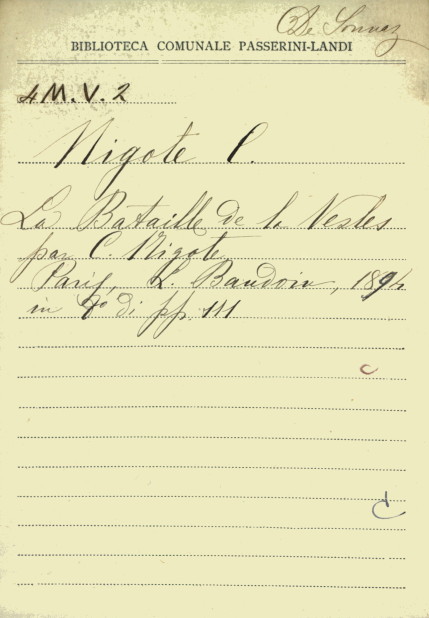 De Sonnaz
BIBLIOTECA COMUNALE PASSERINI-LANDI
4 M. V. 2
Nigote C.
La Bataille de la Vesles
par C. Nigote
Paris, L. Baudoin, 1894
in 8º di pp. 111
c